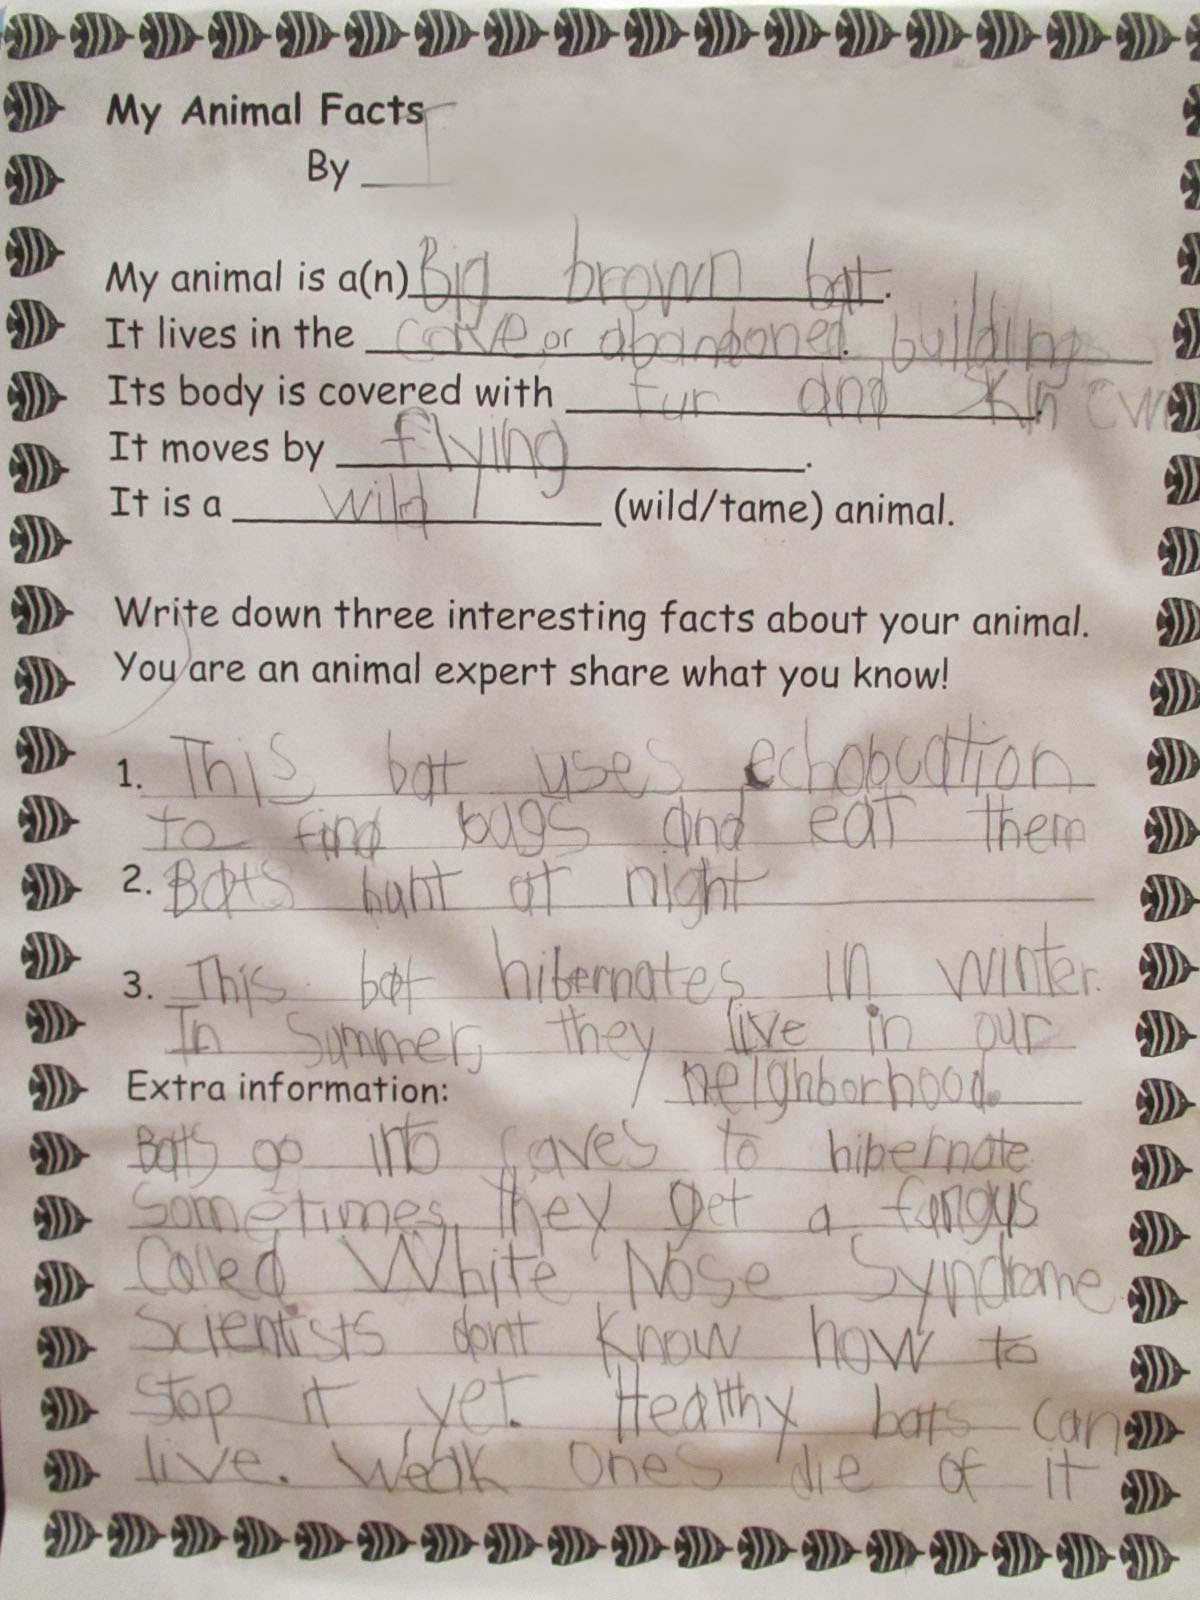 My Animal Facts
By
My animal is a(n) Big brown bat.
It lives in the cave, or abandoned buildings
Its body is covered with fur and skin
It moves by flying.
It is a wild (wild/tame) animal.
Write down three interesting facts about your animal.
You are an animal expert share what you know!
1. This bat uses echolocation
to find bugs and eat them
2. Bats hunt at night
3. This bat hibernates in winter.
In Summer, they live in our
Extra information: neighborhood.
Bats go into caves to hibernate
Sometimes, they get a fungus
Called White Nose Syndrome
Scientists dont know how to
Stop it yet. Healthy bats can
live. Weak ones die of it